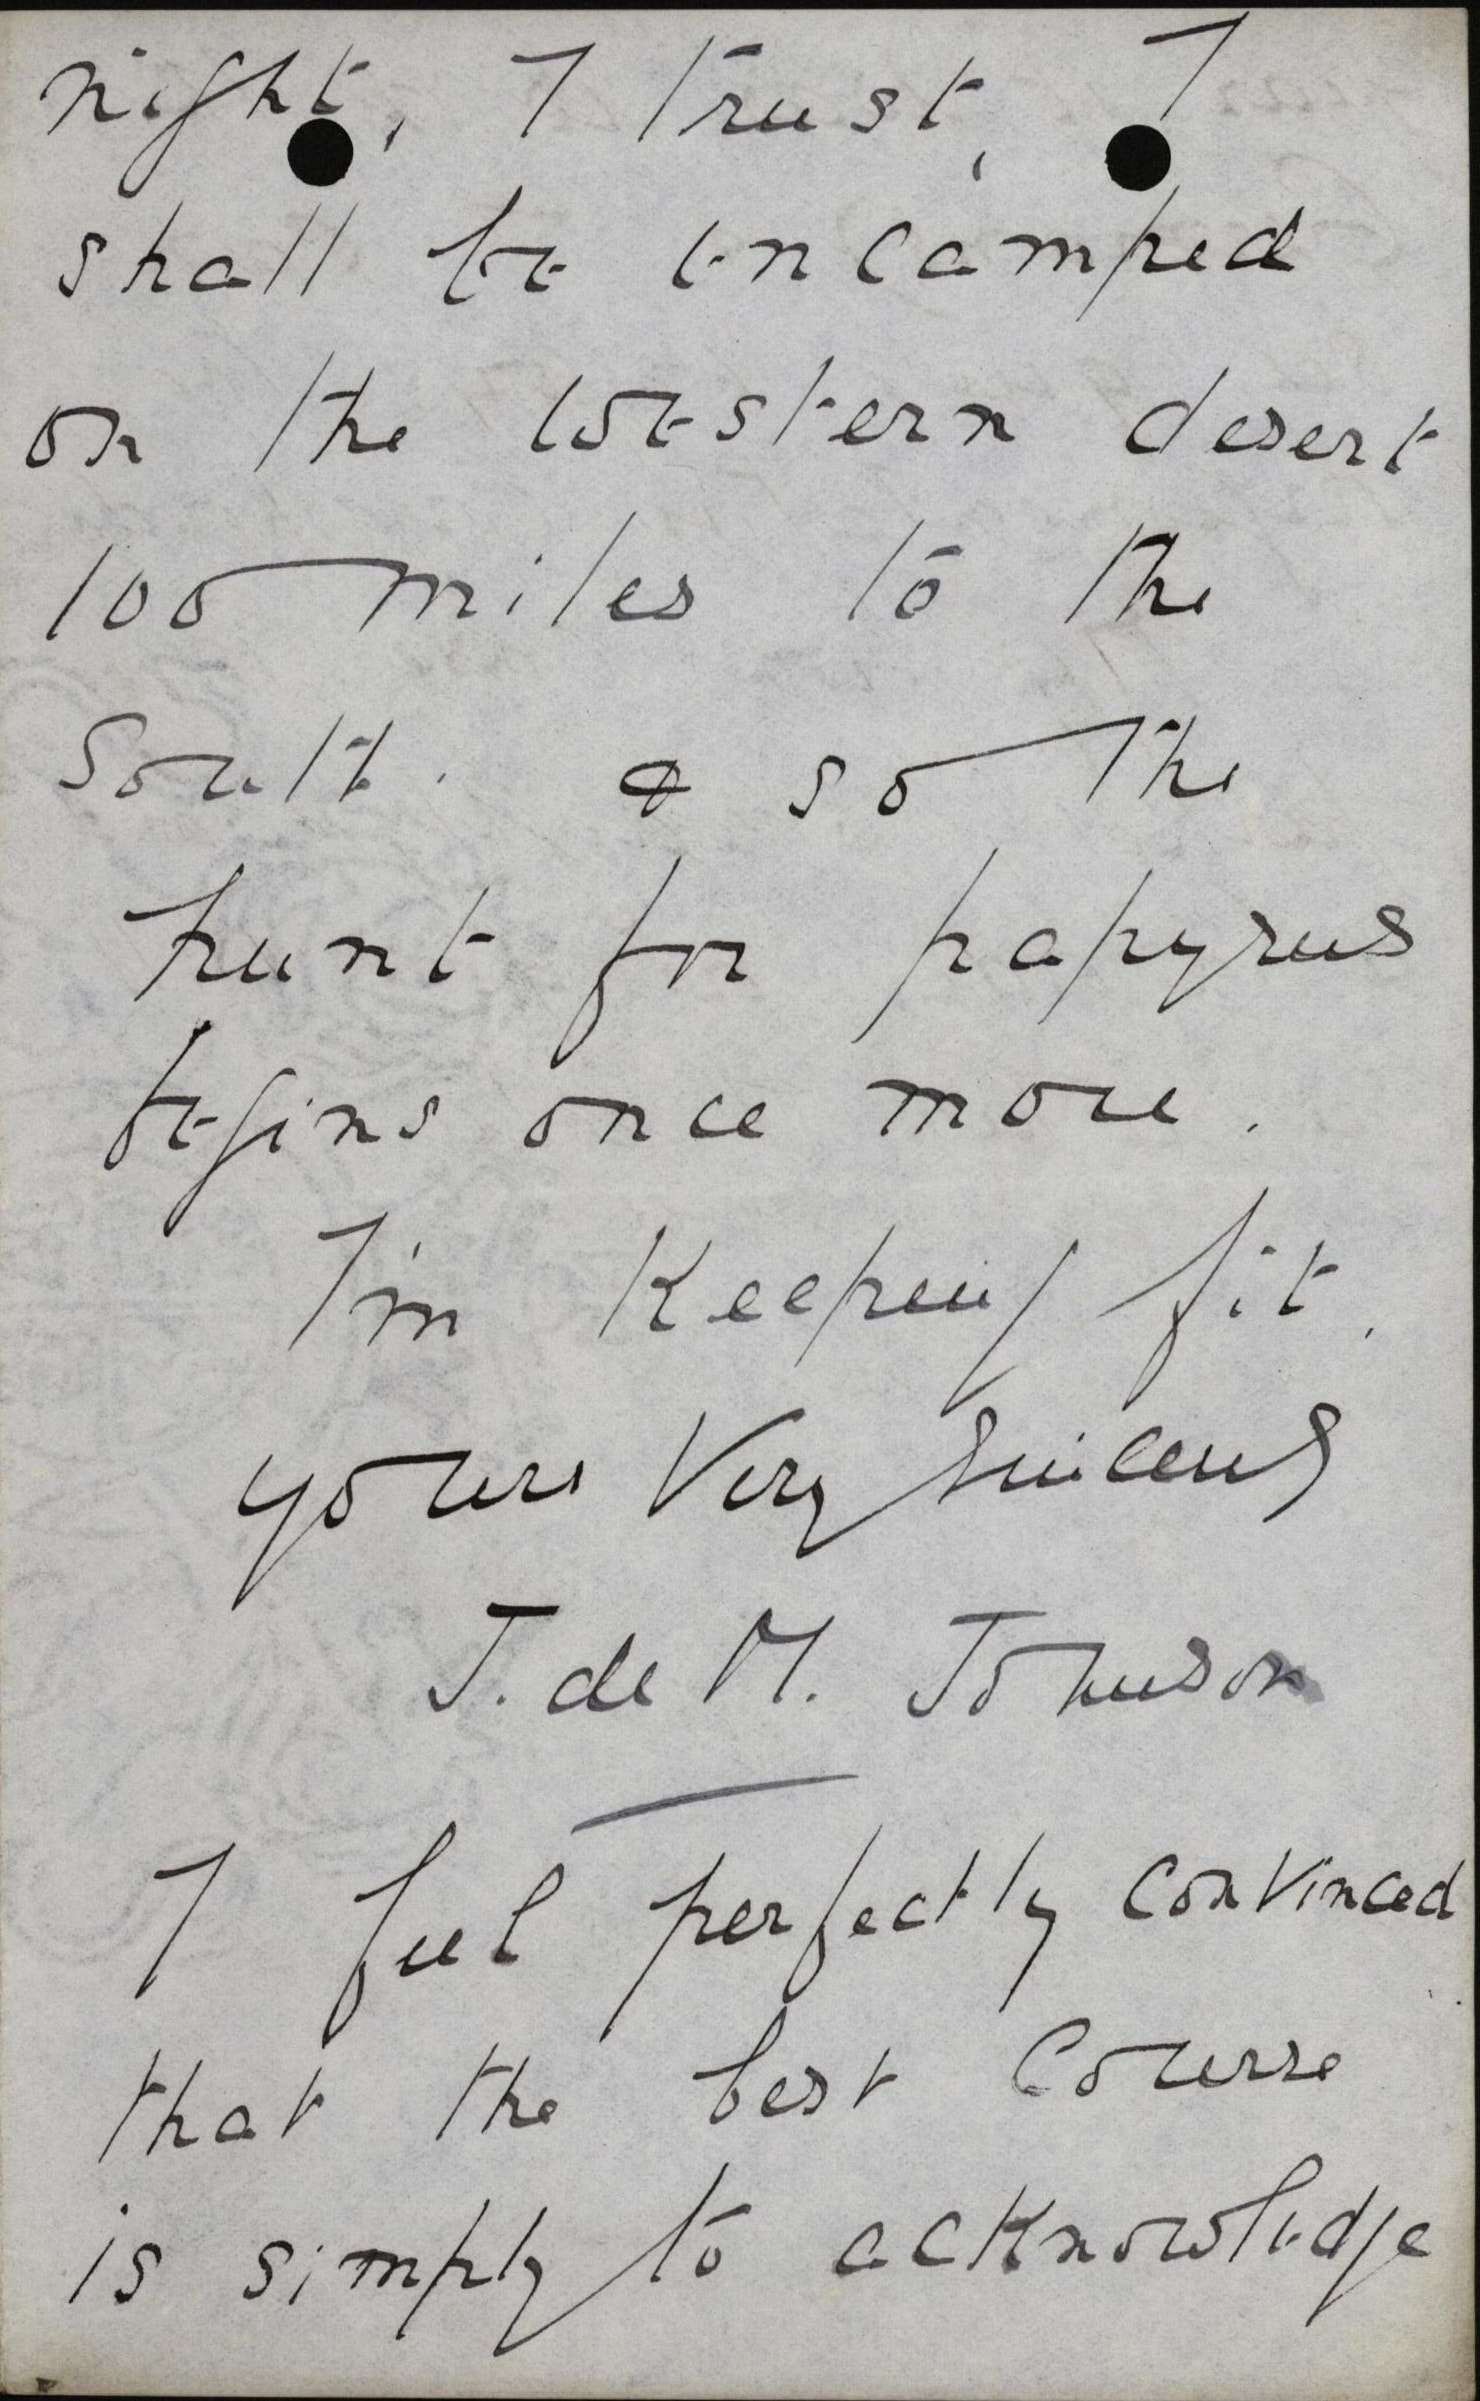 night, I trust, I
shall be encamped
on the western desert
100 miles to the
South. & so the
hunt for papyrus
begins once more.
I'm keeping fit.
yours Very Sincerely
J. de M. Johnson
I feel perfectly convinced
that the best course
is simply to acknowledge